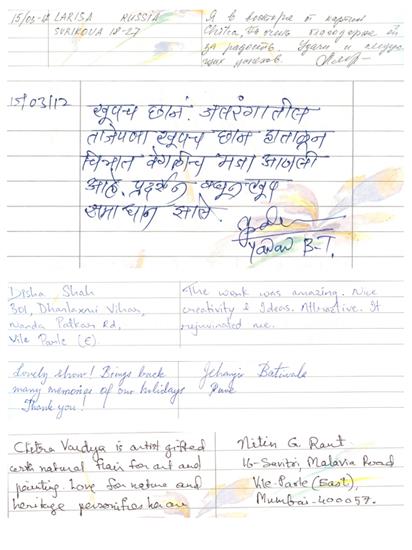 15/03/12 LARISA RUSSIA
SURIKOVA 18-27
Я в восторге от картин
Chitra,
за радость. Удачи и
успехов.
15/03/12
खूपच छान. जलरंगातील
ताजेपणा खूपच छान हाताळून
चित्रात वेगळीच मजा आणली
आहे. प्रदर्शन बघून खूप
समाधान झाले.
Yadav B-T.
Disha Shah
301, Dhanlaxmi Vihar,
Nanda Patkar Rd,
Vile Parle (E).
The work was amazing. Nice
creativity & Ideas. Attractive. It
rejuvinated me.
Lovely show! Brings back
many memories of our holidays
Thank you!
Jehangir Batiwala
Pune
Chitra Vaidya is artist gifted
with natural flair for art and
painting. Love for nature and
heritage personifies her art
Nitin G. Raut
16-Savitri, Malavia Road
Vile-Parle (East),
Mumbai-400057.